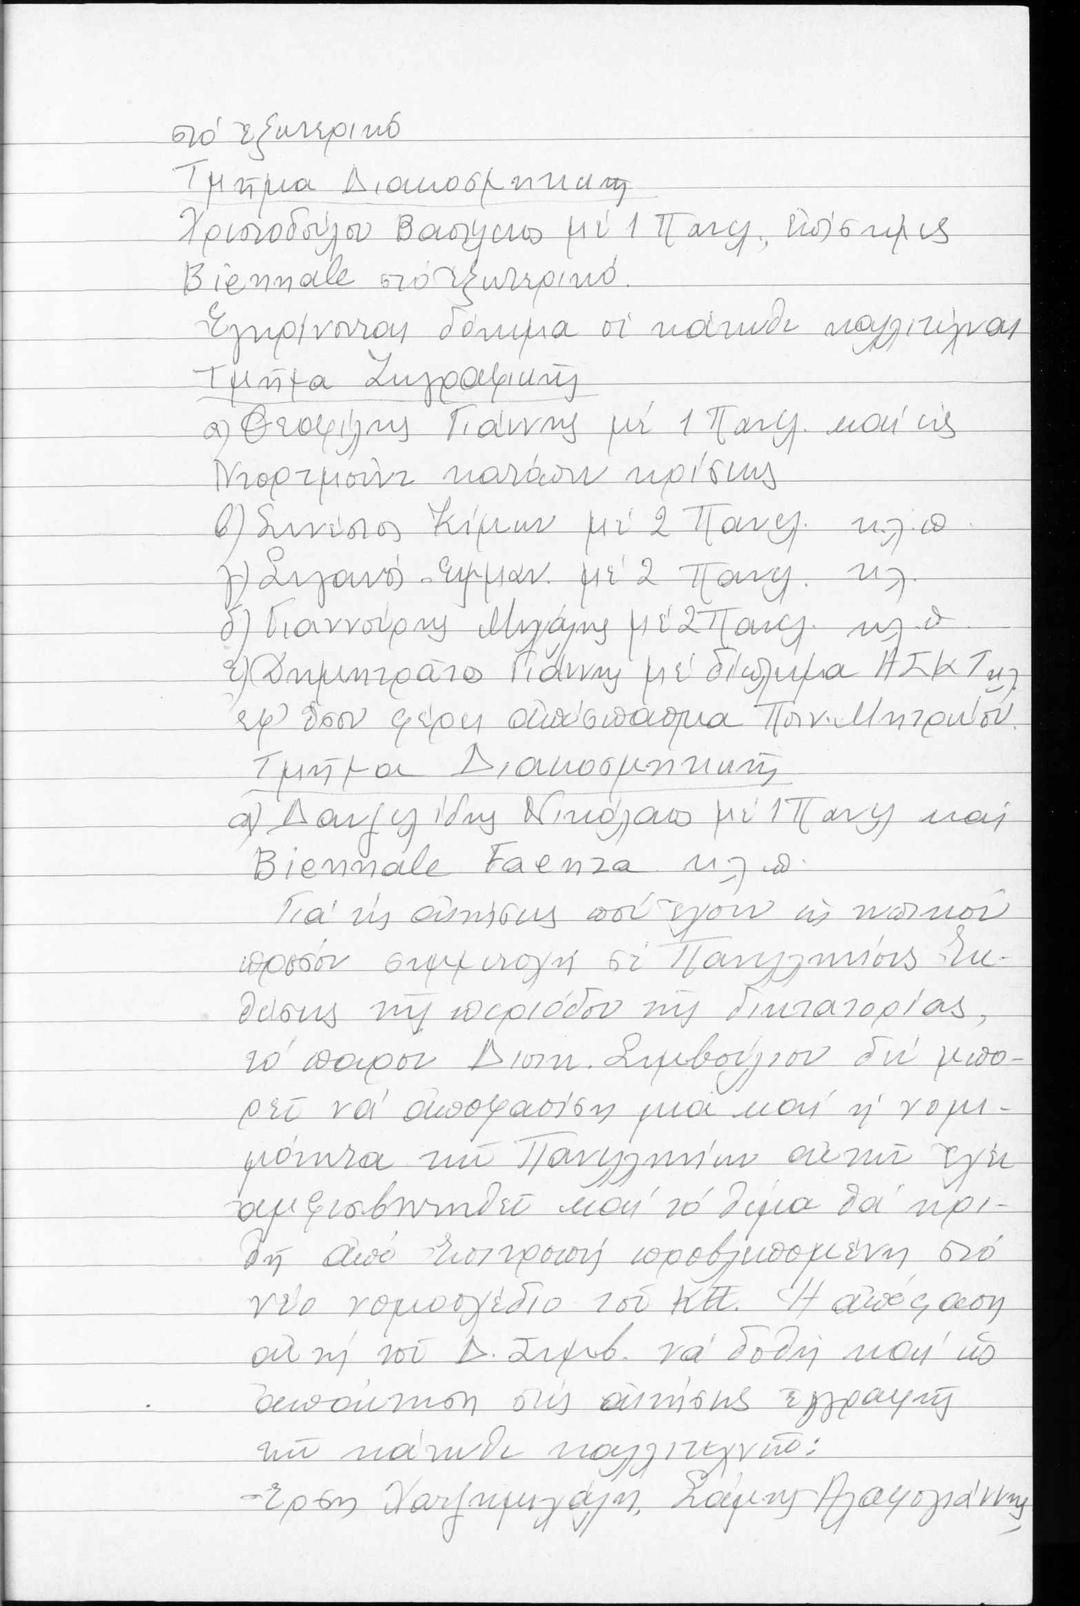 στό ἐξωτερικό
Τμῆμα Διακοσμητική
Χριστοδούλου Βασίλειο μέ 1 Πανελ., ἐπίσημες
Biennale στό ἐξωτερικό.
Ἐγκρίνονται δόκιμα οἱ κάτωθι καλλιτέχναι
Τμῆμα Ζωγραφικῆς
α) Θεοφίλης Γιάννης μέ 1 Πανελ. καί εἰς
κατόπιν κρίσεως
β) Κίμων μέ 2 Πανελ. κ.λ.π.
γ) Ἐμμαν. μέ 2 Πανελ. κλ.
δ) Γιαννούρης Μιχάλης μέ 2 Πανελ. κλ.π.
ε) Δημητράτο Γιάννης μέ δίπλωμα ΑΣΚΤ κλ
ἐφ' ὅσον φέρει ἀπόσπασμα Ποιν. Μητρώου.
Τμῆμα Διακοσμητικῆς
α) Νικόλαο μέ 1 Πανελ καί
Biennale Faenza κλ.π.
Γιά τίς αἰτήσεις πού ἔχουν ὡς τυπικόν
προσόν συμμετοχή σέ Πανελληνίους Ἐκ-
θέσεις τῆς περιόδου τῆς δικτατορίας,
τό παρόν Διοικ. Συμβούλιον δέν μπο-
ρεῖ νά ἀποφασίση μιά καί ἡ νομι-
μότητα τῶν Πανελληνίων αὐτῶν ἔχει
ἀμφισβητηθεῖ καί τό θέμα θά κρι-
θῆ ἀπό Ἐπιτροπή προβλεπομένη στό
νέο νομοσχέδιο τοῦ ΚΠ. Ἡ ἀπόφαση
αὐτή τοῦ Δ. Συμβ. νά δοθῆ καί ὡς
ἀπάντηση στίς αἰτήσεις ἐγγραφῆς
τῶν κάτωθι καλλιτεχνῶν:
-Ἔρση Χατζημιχάλη, Σάμης Αλαφογιάννης